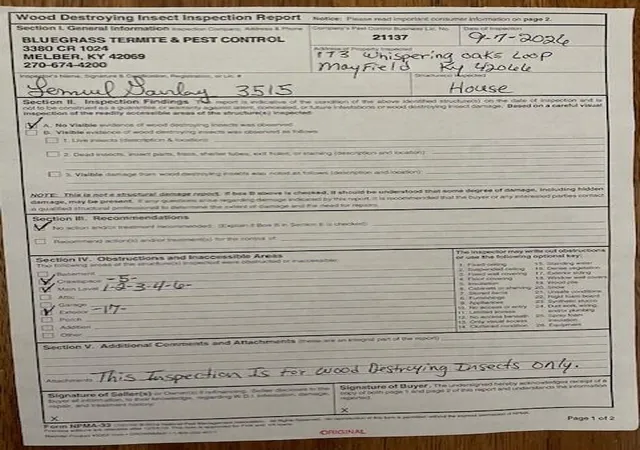 Wood Destroying Insect Inspection Report Notice: Please read important consumer information on page 2.
Section I. General Information Inspection Company, Address & Phone Company's Pest Control Business Lic. No. Date of Inspection
BLUEGRASS TERMITE & PEST CONTROL
3380 CR 1024
MELBER, KY 42069
270-674-4200
21137
9-7-2026
Address of Property Inspected
173 Whispering Oaks Loop
Mayfield KY 42066
Inspector's Name, Signature & Certification, Registration, or Lic. #
3515
Structure(s) Inspected
House
Section II. Inspection Findings This report is indicative of the condition of the above identified structure(s) on the date of inspection and is
not to be construed as a guarantee or warranty against latent, concealed, or future infestations or wood destroying insect damage. Based on a careful visual
inspection of the readily accessible areas of the structure(s) inspected:
A. No Visible evidence of wood destroying insects was observed.
B. Visible evidence of wood destroying insects was observed as follows:
1. Live insects (description & location):
2. Dead insects, insect parts, frass, shelter tubes, exit holes, or staining (description and location):
3. Visible damage from wood destroying insects was noted as follows (description and location):
NOTE: This is not a structural damage report. If box B above is checked, it should be understood that some degree of damage, including hidden
damage, may be present. If any questions arise regarding damage indicated by this report, it is recommended that the buyer or any interested parties contact
a qualified structural professional to determine the extent of damage and the need for repairs.
Section III. Recommendations
No action and/or treatment recommended: (Explain if Box B in Section II is checked)
Recommend action(s) and/or treatment(s) for the control of:
Section IV. Obstructions and Inaccessible Areas
The following areas of the structure(s) inspected were obstructed or inaccessible:
Basement
Crawlspace -5-
Main Level 1-2-3-4-6-
Attic
Garage
Exterior -17-
Porch
Addition
Other
The inspector may write out obstructions
or use the following optional key:
1. Fixed ceiling
2. Suspended ceiling
3. Fixed wall covering
4. Floor covering
5. Insulation
6. Cabinets or shelving
7. Stored items
8. Furnishings
9. Appliances
10. No access or entry
11. Limited access
12. No access beneath
13. Only visual access
14. Cluttered condition
15. Standing water
16. Dense vegetation
17. Exterior siding
18. Window well covers
19. Wood pile
20. Snow
21. Unsafe conditions
22. Rigid foam board
23. Synthetic stucco
24. Duct work, wiring,
and/or plumbing
25. Spray foam
insulation
26. Equipment
Section V. Additional Comments and Attachments (these are an integral part of the report)
Attachments This Inspection Is For Wood Destroying Insects Only.
Signature of Seller(s) or Owner(s) if refinancing. Seller discloses to the
buyer all information, to their knowledge, regarding W.D.I. infestation, damage,
repair, and treatment history.
X
Signature of Buyer. The undersigned hereby acknowledges receipt of a
copy of both page 1 and page 2 of this report and understands the information
reported.
X
Form NPMA-33
ORIGINAL
Page 1 of 2